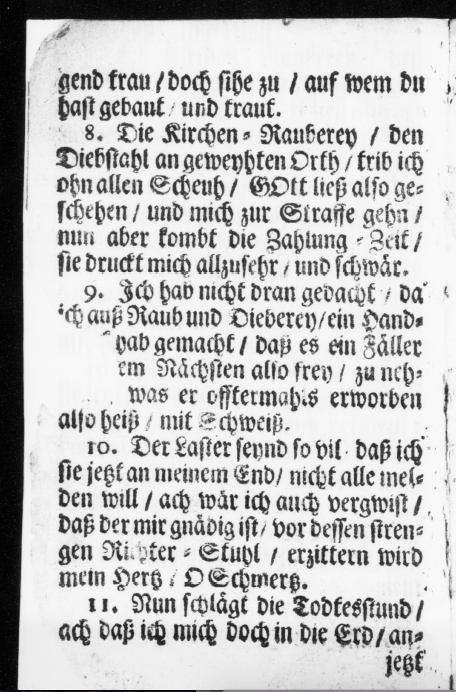 gend trau / doch sihe zu / auf wem du
hast gebaut / und traut.
8. Die Kirchen-Rauberey / den
Diebstahl an geweyhten Orth / trib ich
ohn allen Scheuh / GOtt ließ also ge-
schehen / und mich zur Straffe gehn /
nun aber kombt die Zahlung-Zeit /
sie druckt mich allzusehr / und schwär.
9. Ich hab nicht dran gedacht / da
ich auß Raub und Dieberey / ein Hand-
hab gemacht / daß es ein Fäller
em Nächsten also frey / zu neh-
was er offtermahls erworben
also heiß / mit Schweiß.
10. Der Laster seynd so vil daß ich
sie jetzt an meinem End / nicht alle mel-
den will / ach wär ich auch vergwist /
daß der mir gnädig ist / vor dessen stren-
gen Richter-Stuhl / erzittern wird
mein Hertz / O Schmertz.
11. Nun schlägt die Todtesstund /
ach daß ich mich doch in die Erd / an-
jetzt